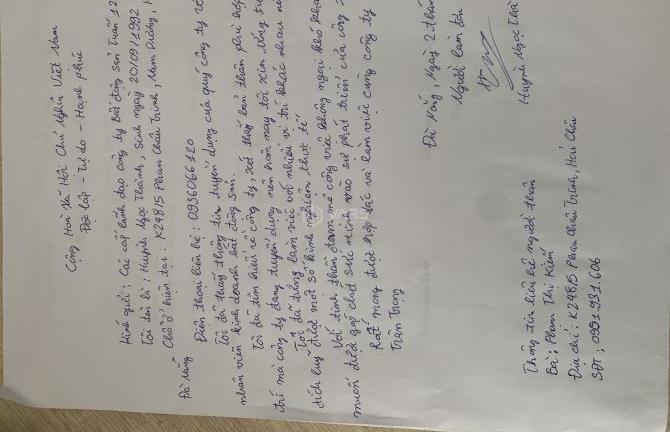 Cộng Hoà Xã Hội Chủ Nghĩa Việt Nam
Độc lập - Tự do - Hạnh phúc
Kính gửi: Các cấp lãnh đạo công ty bất động sản Tuấn 12
Tôi tên là: Huỳnh Ngọc Thành, Sinh ngày 20/09/1992
Chỗ ở hiện tại: K298/5 Phan Châu Trinh, Nam Dương, H
Đà Nẵng
Điện thoại liên hệ: 0936066120
Tôi đã thấy thông tin tuyển dụng của quý công ty về
nhân viên kinh doanh bất động sản.
Tôi đã tìm hiểu về công ty, xét thấy bản thân phù hợp
trí mà công ty đang tuyển dụng nên hôm nay tôi xin ứng tu
Tôi đã từng làm việc với nhiều vị trí khác nhau nê
tích luỹ được một số kinh nghiệm thực tế
Với tinh thần đam mê công việc không ngại khó kh
muốn được góp chút sức mình vào sự phát triển của công
Rất mong được hợp tác và làm việc cùng công ty
Trân trọng
Đà Nẵng, Ngày 2 thán
Người làm đơn
Huỳnh Ngọc Thà
Thông tin liên hệ người thân
Bà: Phạm Thị Kiến
Địa chỉ: K298/5 Phan Châu Trinh, Hải Châu
SĐT: 0931931606